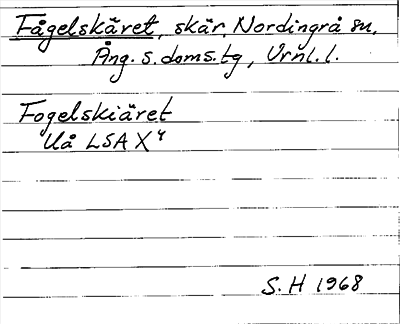 Fågelskäret, skär, Nordingrå sn,
Ång. s. doms.tg, Vrnl. l.
Fogelskiäret
Uå LSA X4
S. H 1968